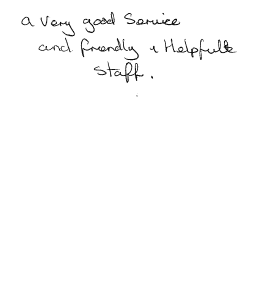 a very good Service
and friendly & Helpfull
Staff.